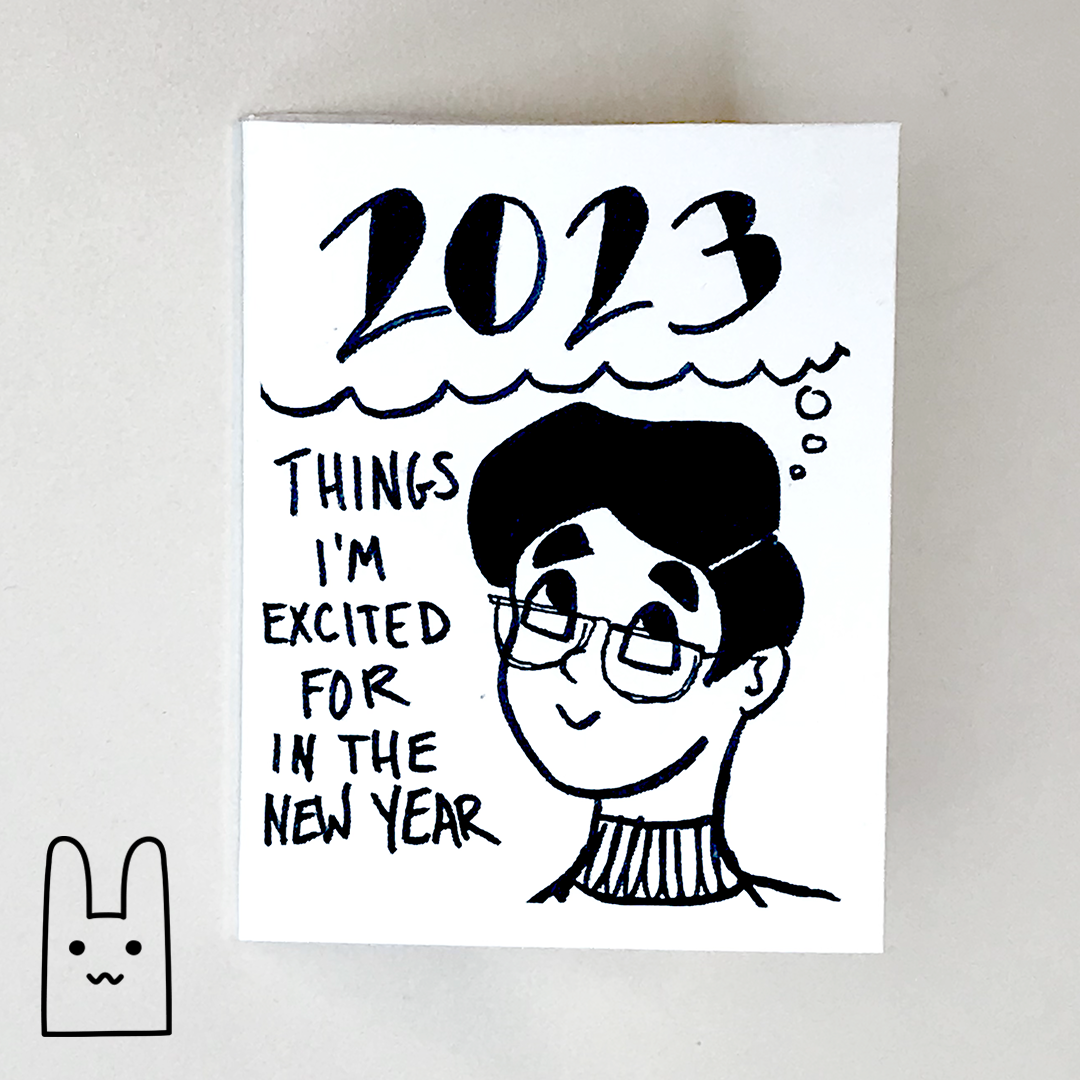 2023
THINGS
I'M
EXCITED
FOR
IN THE
NEW YEAR